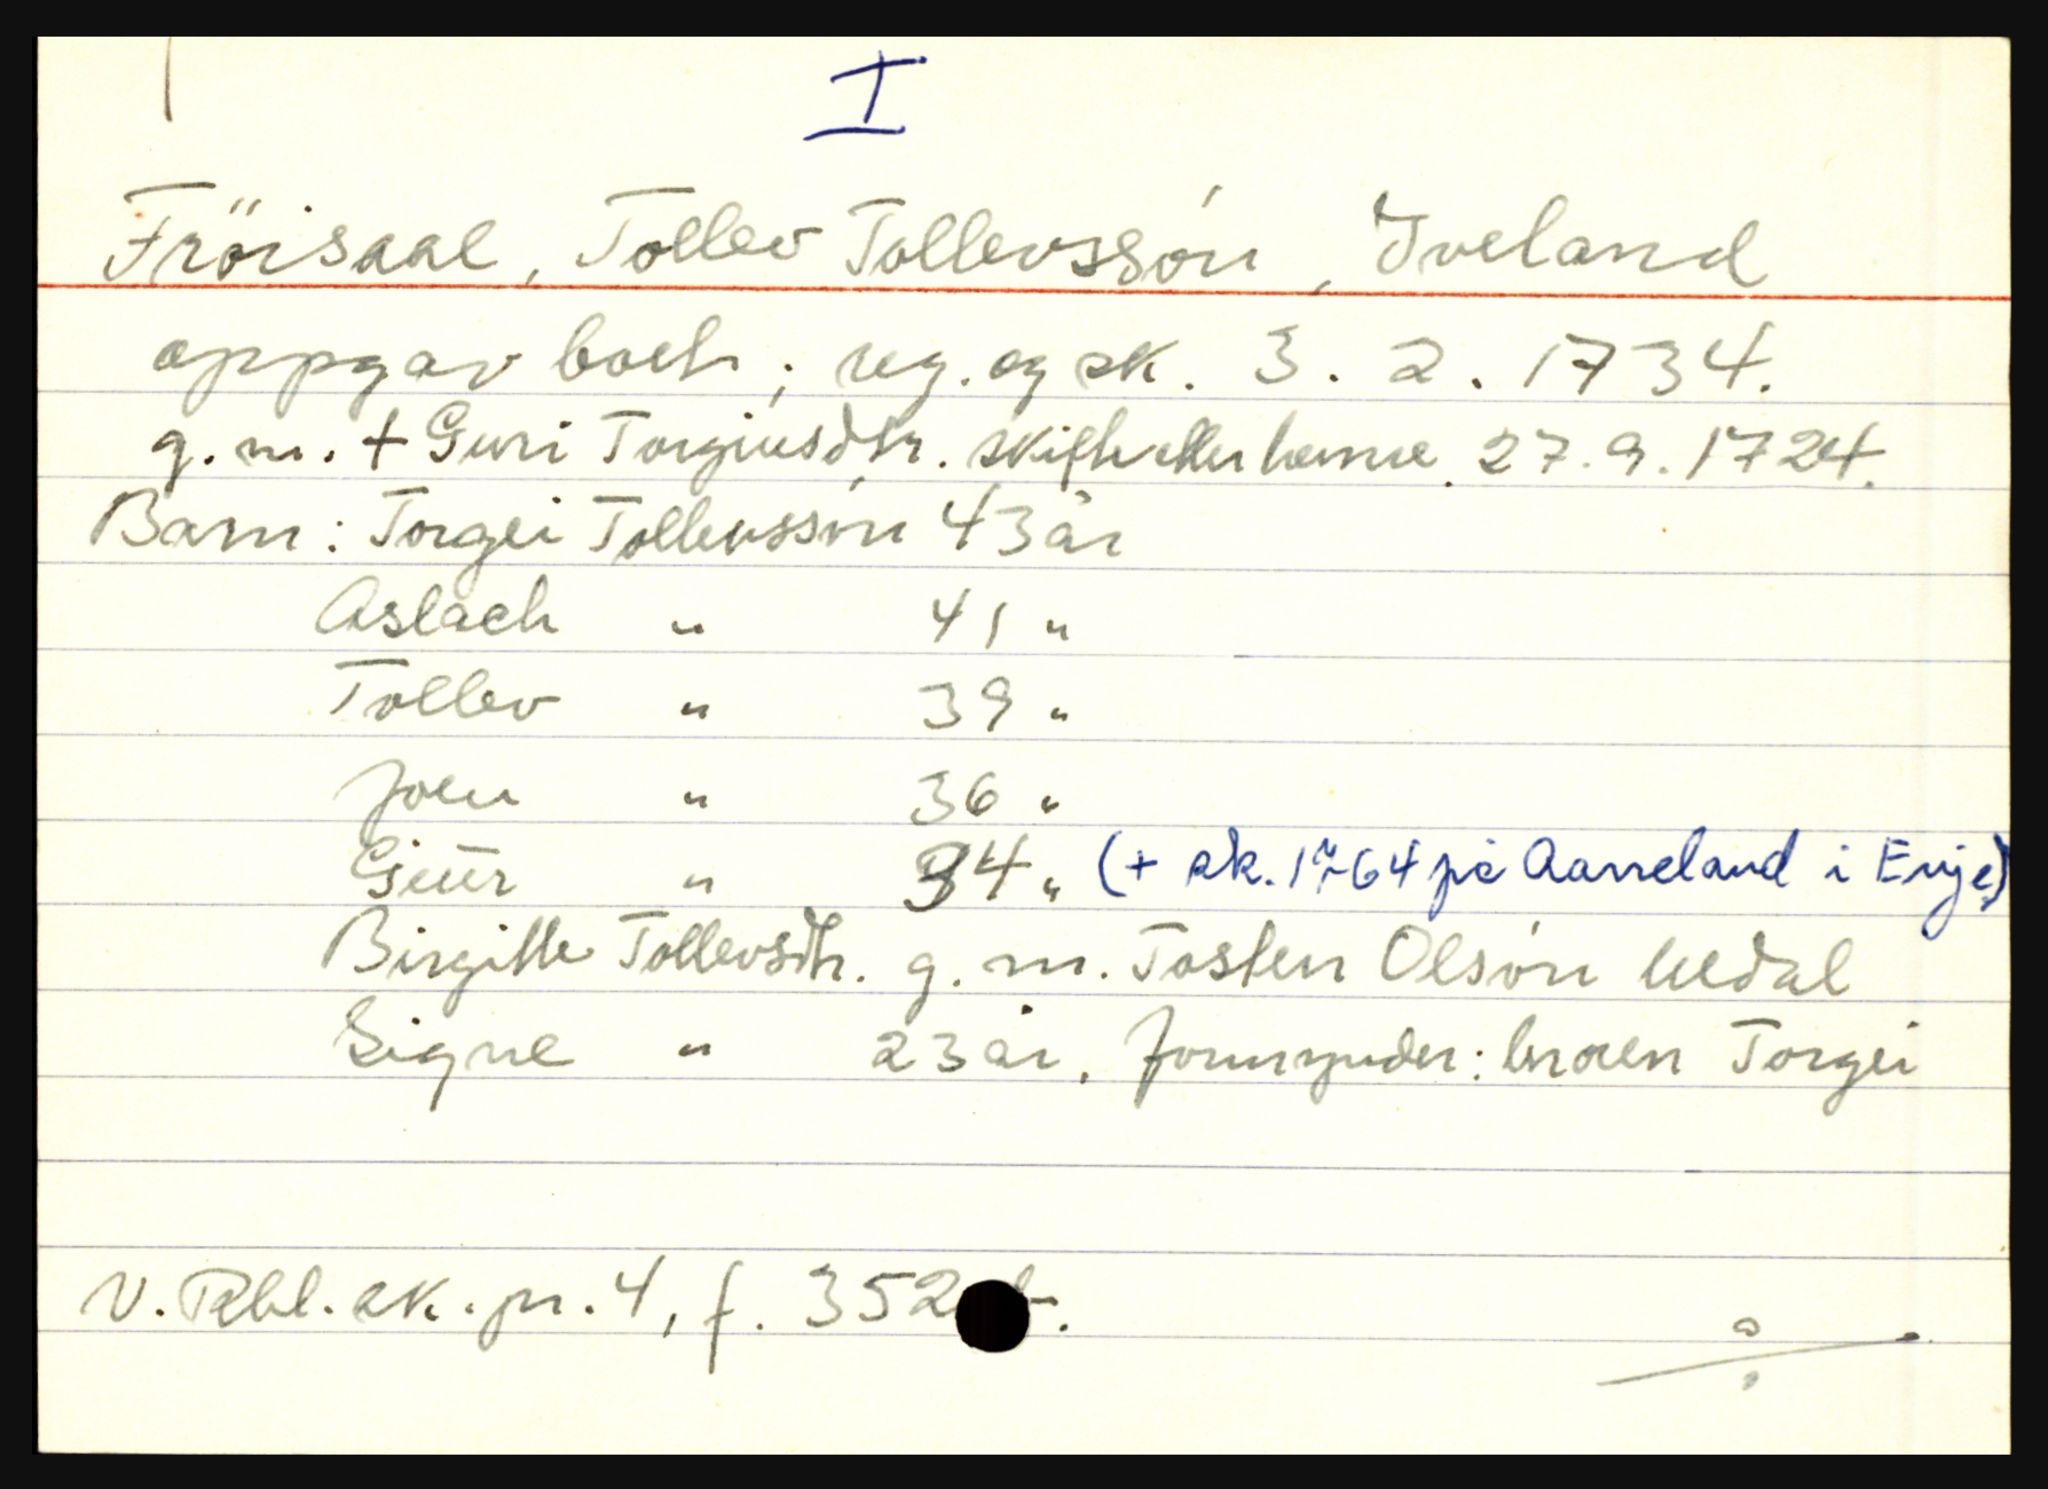 I
Fröisaal, Tollev Tollevssón, Iveland
oppgav boet; reg. og sk. 3. 2. 1734.
g. m. + Guri Torgiusdtr. skifte etter henne 27. 9. 1724.
Barn: Torgei Tollevssón 43 år
Aslach " 41 "
Tollev " 39 "
Joen " 36 "
Gieur " 34 " (+ sk. 1764 på Aaneland i Evje)
Birgitte Tollevsdtr. g. m. Tosten Olsón Uldal
Signe " 23 år, formynder: broren Torgei
V. Rbl. sk. pr. 4, f. 352